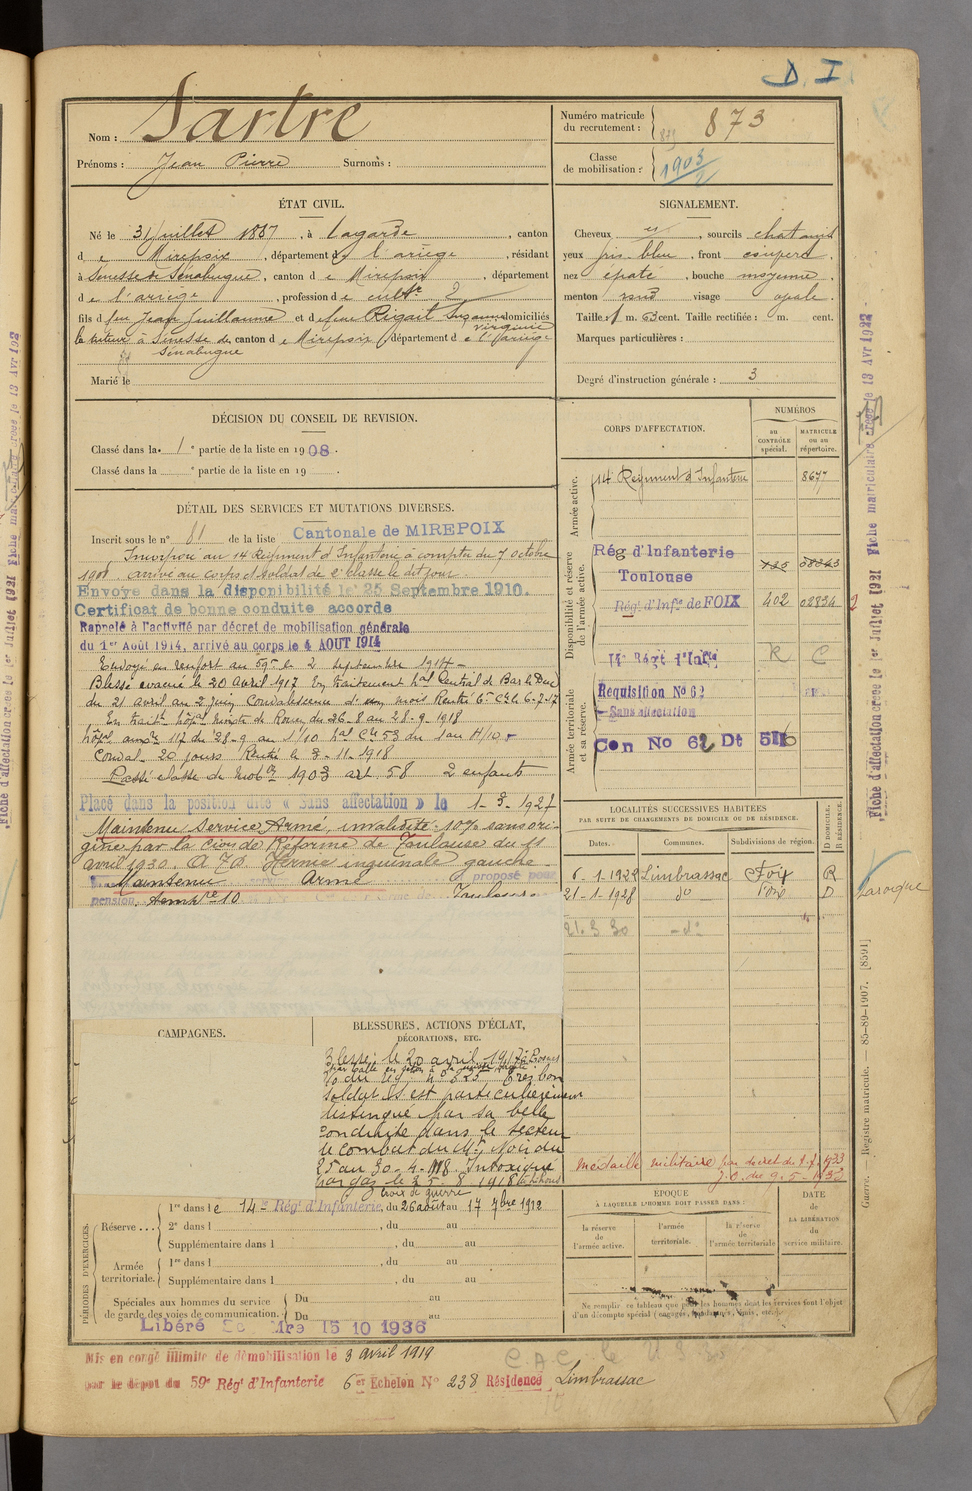 D. I.
Nom : Sartre
Prénoms : Jean Pierre Surnoms :
Numéro matricule du recrutement : 873
Classe de mobilisation : 1903/2
ÉTAT CIVIL.
Né le 31 Juillet 1887, à Lagarde, canton
de Mirepoix, département de l'ariège, résidant
à Senesse de Sénabugue, canton de Mirepoix, département
de l'ariège, profession de cultr
fils de feu Jean Guillaume et de feue Rigail Suzanne domiciliés
virginie
le tuteur à Senesse de canton de Mirepoix département de l'Ariège
Sénabugue
Marié le
SIGNALEMENT.
Cheveux, sourcils chatains
yeux gris bleu, front
nez épaté, bouche moyenne,
menton rond visage ovale.
Taille : 1 m. 63 cent. Taille rectifiée : m. cent.
Marques particulières :
Degré d'instruction générale : 3
DÉCISION DU CONSEIL DE REVISION.
Classé dans la 1e partie de la liste en 1908.
Classé dans la e partie de la liste en 19 .
DÉTAIL DES SERVICES ET MUTATIONS DIVERSES.
Inscrit sous le n° 81 de la liste Cantonale de MIREPOIX
Incorporé au 14 Régiment d'Infanterie à compter du 7 octobre
1908. arrivé au corps et soldat de 2e classe le dit jour.
Envoyé dans la disponibilité le 25 Septembre 1910.
Certificat de bonne conduite accordé
Rappelé à l'activité par décret de mobilisation générale
du 1er Août 1914, arrivé au corps le 4 AOUT 1914
Envoyé en renfort au 59e le 2 septembre 1914 -
Blessé évacué le 20 avril 1917 En traitement hal Central de Bar le Duc
du 21 avril au 2 juin Convalescence d'un mois Rentré 6e Cie le 6-7-17
En traitt hôpal mixte de Rouen du 26-8 au 28-9 1918
hôpal 117 du 28-9 au 1/10
Conval 20 jours Rentré le 3-11-1918
Passé classe de Mobon 1903 art. 58 2 enfants
Placé dans la position dite « Sans affectation » le 1-3-1927
Maintenu Service Armé, invalidité 10% sans ori-
gine par la Cion de Réforme de Toulouse du 11
avril 1930. Hernie inguinale gauche.
Maintenu Armé proposé pour
pension, 10 Toulouse
CORPS D'AFFECTATION.
NUMÉROS
au CONTRÔLE spécial.
MATRICULE ou au répertoire.
Armée active.
14e Régiment d'Infanterie 8677
Disponibilité et réserve de l'armée active.
Rég d'Infanterie
Toulouse
Rég. d'Infie de FOIX 402 02834
14e Régt d'Infie
Armée territoriale et sa réserve.
Requisition No 62
- Sans affectation
Con No 62 Dt
LOCALITÉS SUCCESSIVES HABITÉES
PAR SUITE DE CHANGEMENTS DE DOMICILE OU DE RÉSIDENCE.
Dates. Communes. Subdivisions de région. D DOMICILE. R RÉSIDENCE.
6-1-1922 Limbrassac Foix R
21-1-1928 do Foix D Laroque
21.3.30 - do
Médaille militaire par décret du
J.O. du 9-5-1933
CAMPAGNES.
BLESSURES, ACTIONS D'ÉCLAT,
DÉCORATIONS, ETC.
Blessé le 20 avril 1917 à
Très bon
soldat s'est particulièrement
distingué par sa belle
conduite dans le secteur
de combat du Mt Noir du
25 au 30-4-1918. Intoxiqué
par gaz le 25-8 1918
Croix de guerre
PÉRIODES D'EXERCICES.
Réserve... 1re dans le 14e Régt d'Infanterie, du 26 août au 17 7bre 1912
2e dans l , du au
Supplémentaire dans l , du au
Armée territoriale. 1re dans l , du au
Supplémentaire dans l , du au
Spéciales aux hommes du service de garde des voies de communication. Du au
Du au
Libéré 15 10 1936
ÉPOQUE
À LAQUELLE L'HOMME DOIT PASSER DANS :
la réserve de l'armée active.
l'armée territoriale.
la réserve de l'armée territoriale
DATE DE LA LIBÉRATION du service militaire.
Ne remplir ce tableau que pour les hommes dont les services font l'objet
d'un décompte spécial (engagés,
Mis en congé illimité de démobilisation le 3 avril 1919
par le dépôt du 59e Régt d'Infanterie 6er Echelon No 238 Résidence Limbrassac
Fiche d'affectation créée le 1er Juillet 1921 Fiche matriculaire créée le 13 Avr 1922
Guerre. — Registre matricule. — 85-89-1907. [8591]